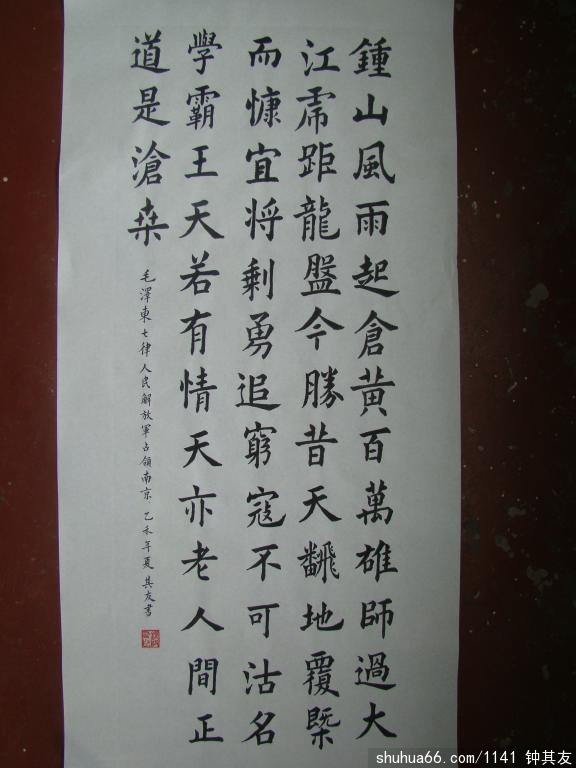 鍾山風雨起倉黄百萬雄師過大
江虎距龍盤今勝昔天飜地覆槩
而慷宜将剩勇追窮寇不可沽名
學霸王天若有情天亦老人間正
道是滄桒
毛澤東七律人民解放軍占領南京 乙未年夏 其友書
shuhua66.com/1141 钟其友